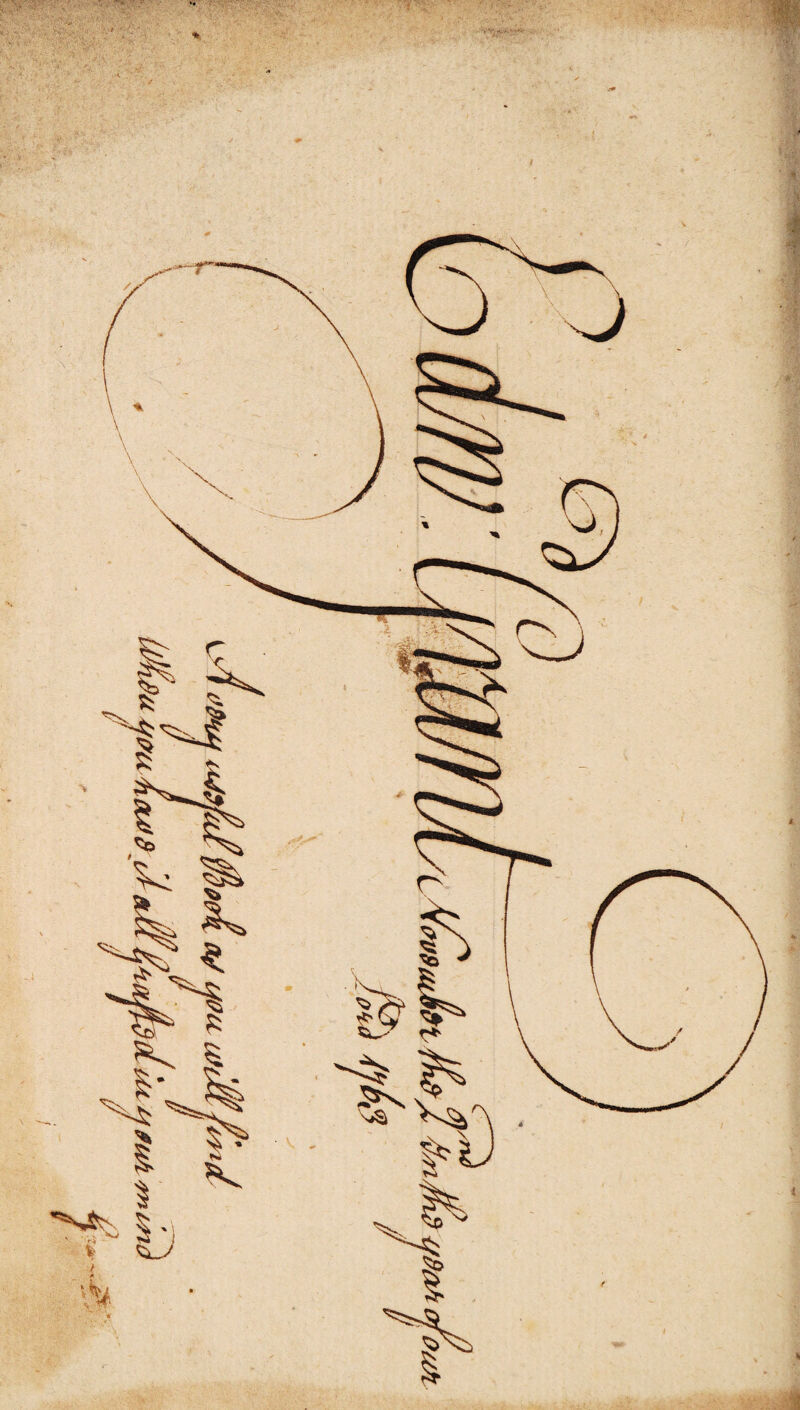 Edw:d Grant November the 2nd In the year of our
Lord 1763
A very useful Book as you will find
When you have it all Grafted in your mind
Grant